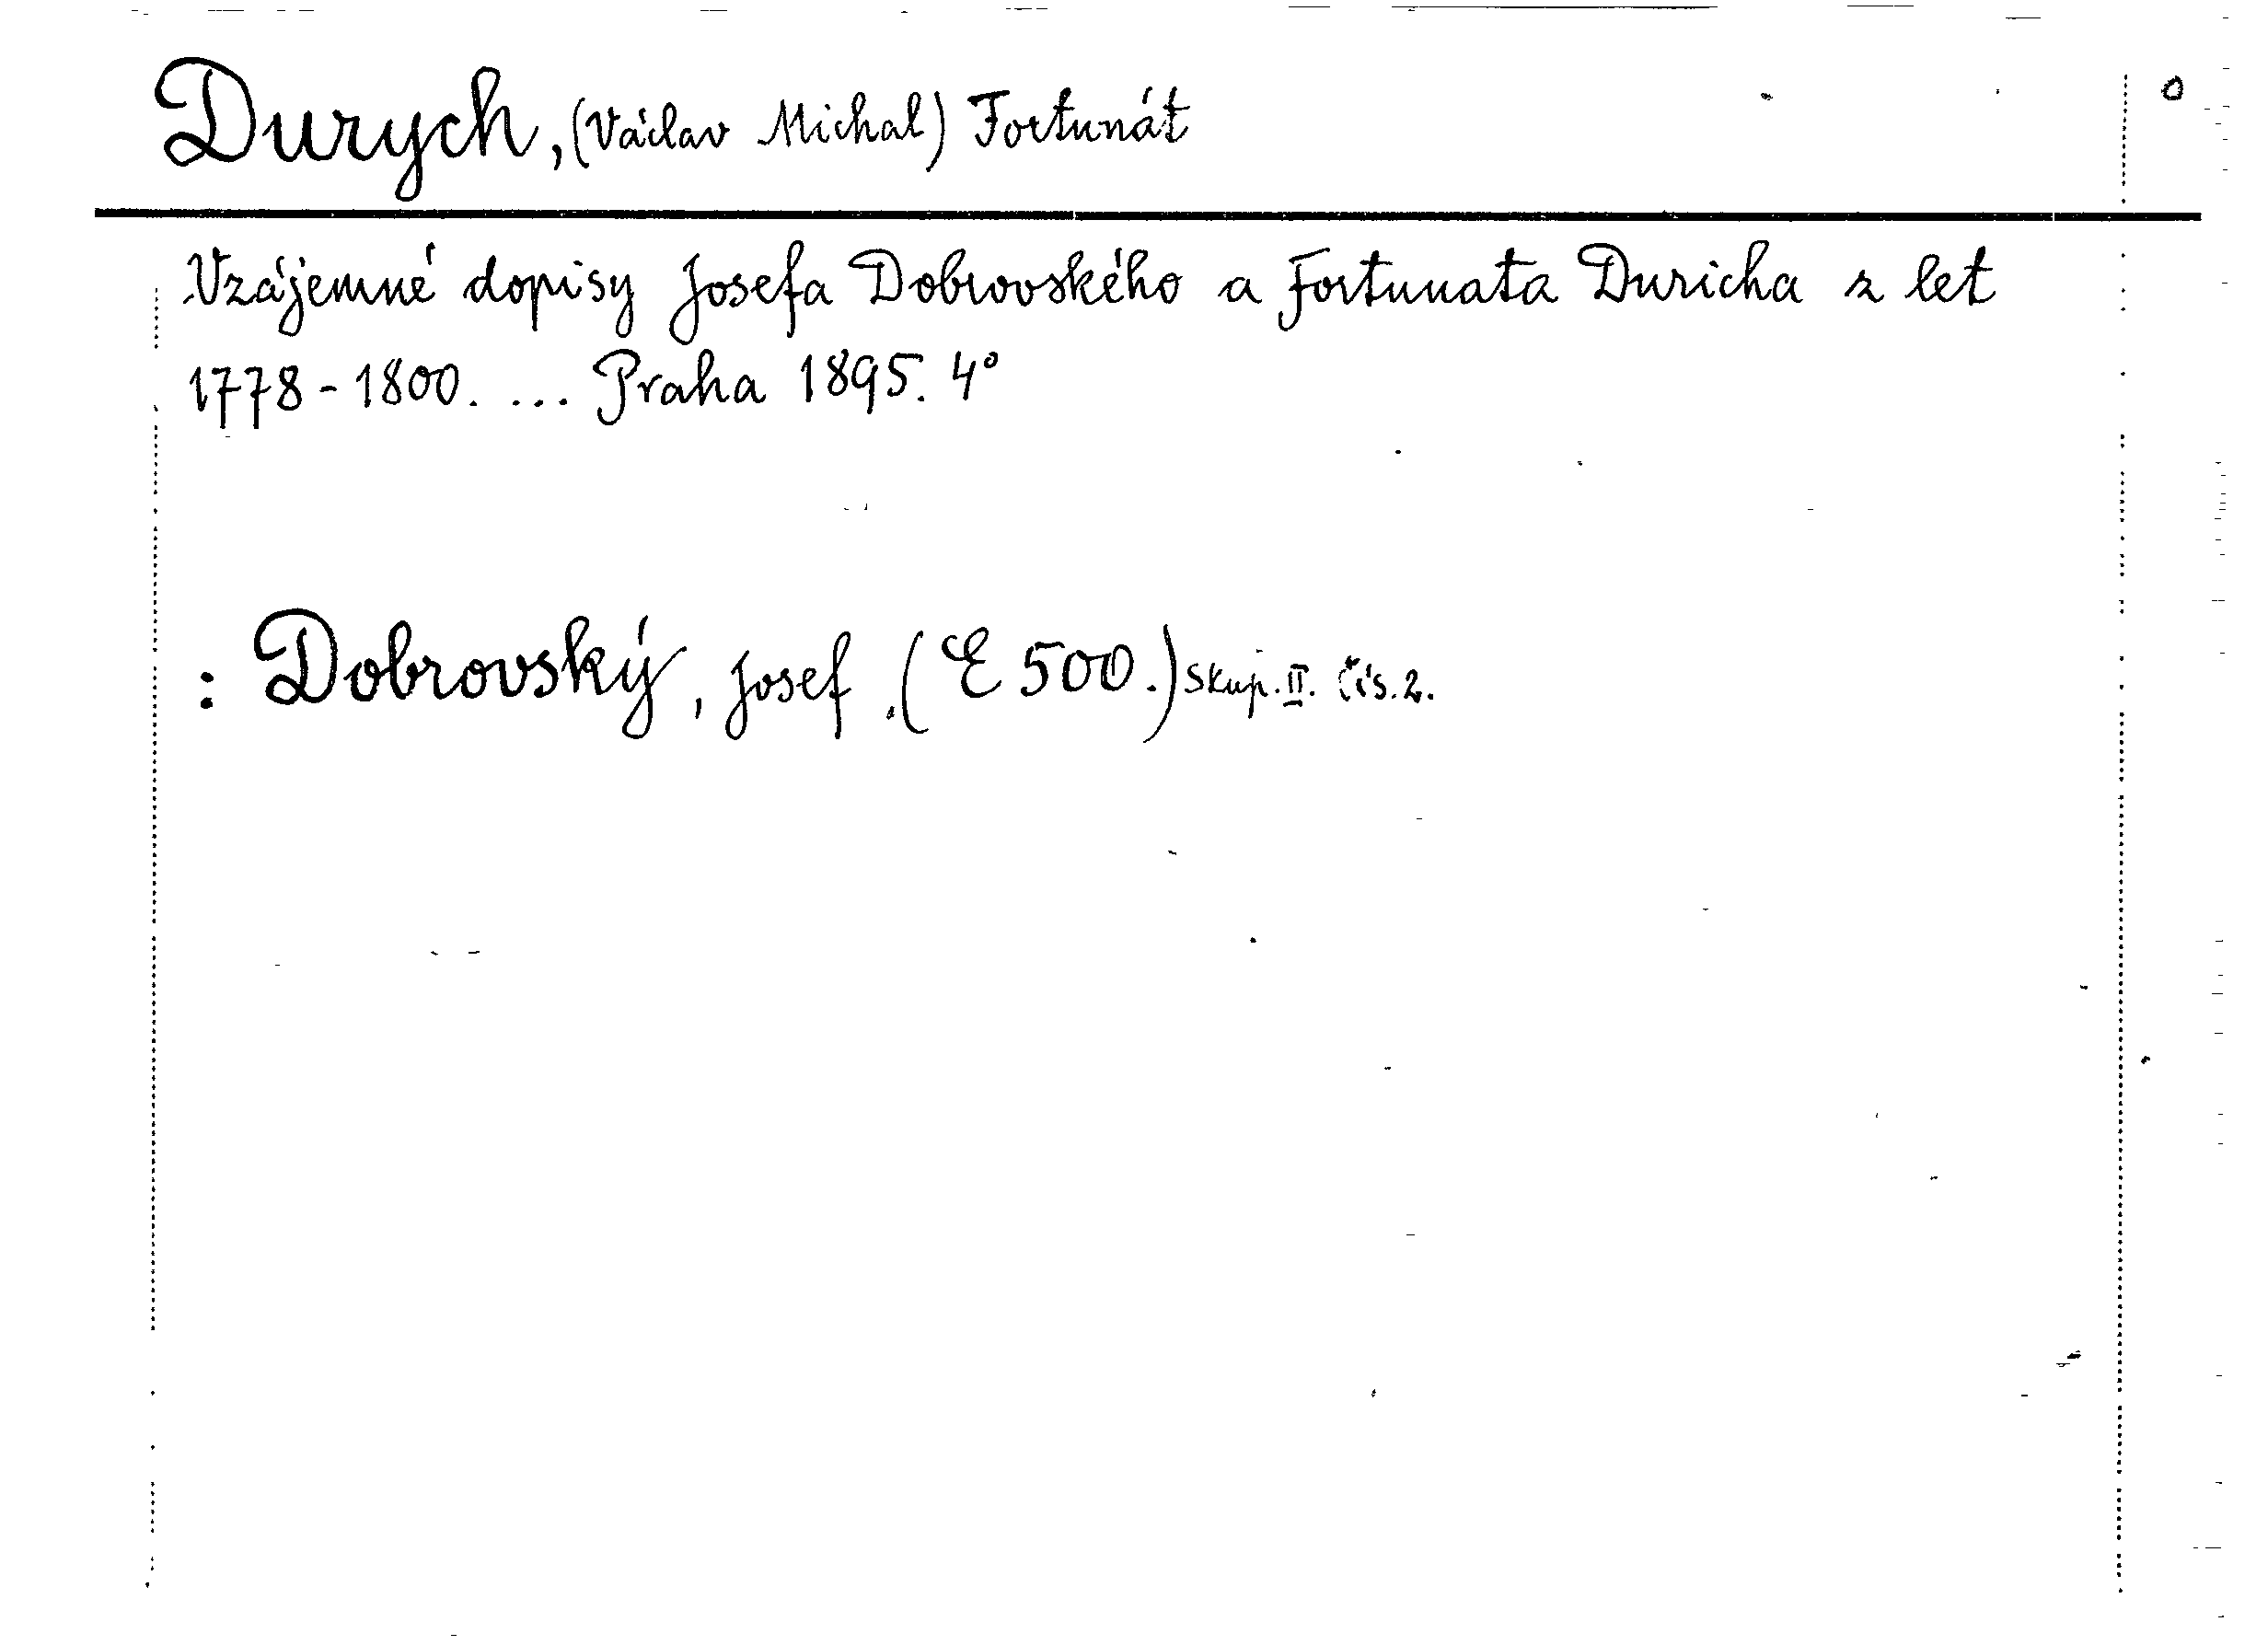 Durych, (Václav Michal) Fortunát
Vzájemné dopisy Josefa Dobrovského a Fortunata Duricha z let
1778-1800. ... Praha 1895. 4°
: Dobrovský, Josef. (E 500.) Skup. II. čís. 2.